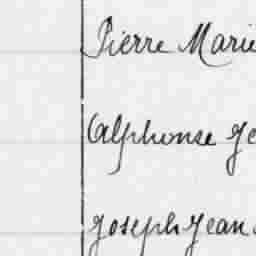 Pierre Marie
Alphonse Je
Joseph Jean